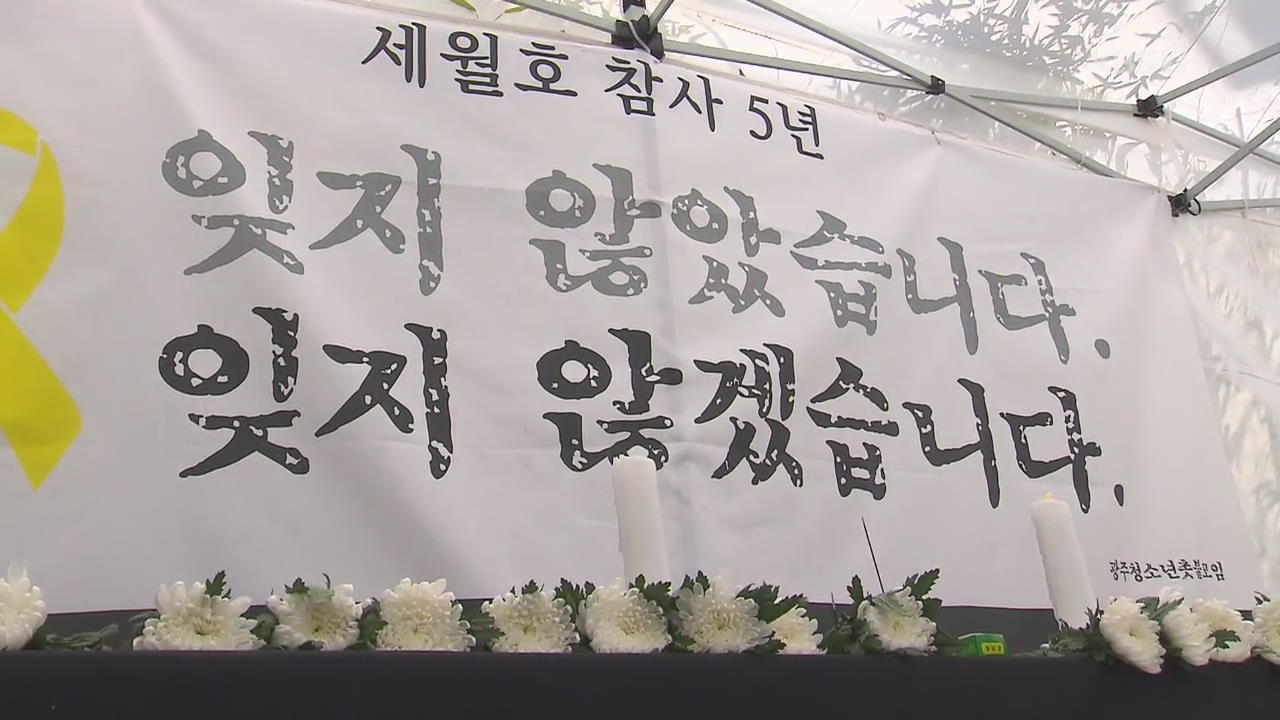 세월호 참사 5년
잊지 않았습니다.
잊지 않겠습니다.
광주청소년촛불모임